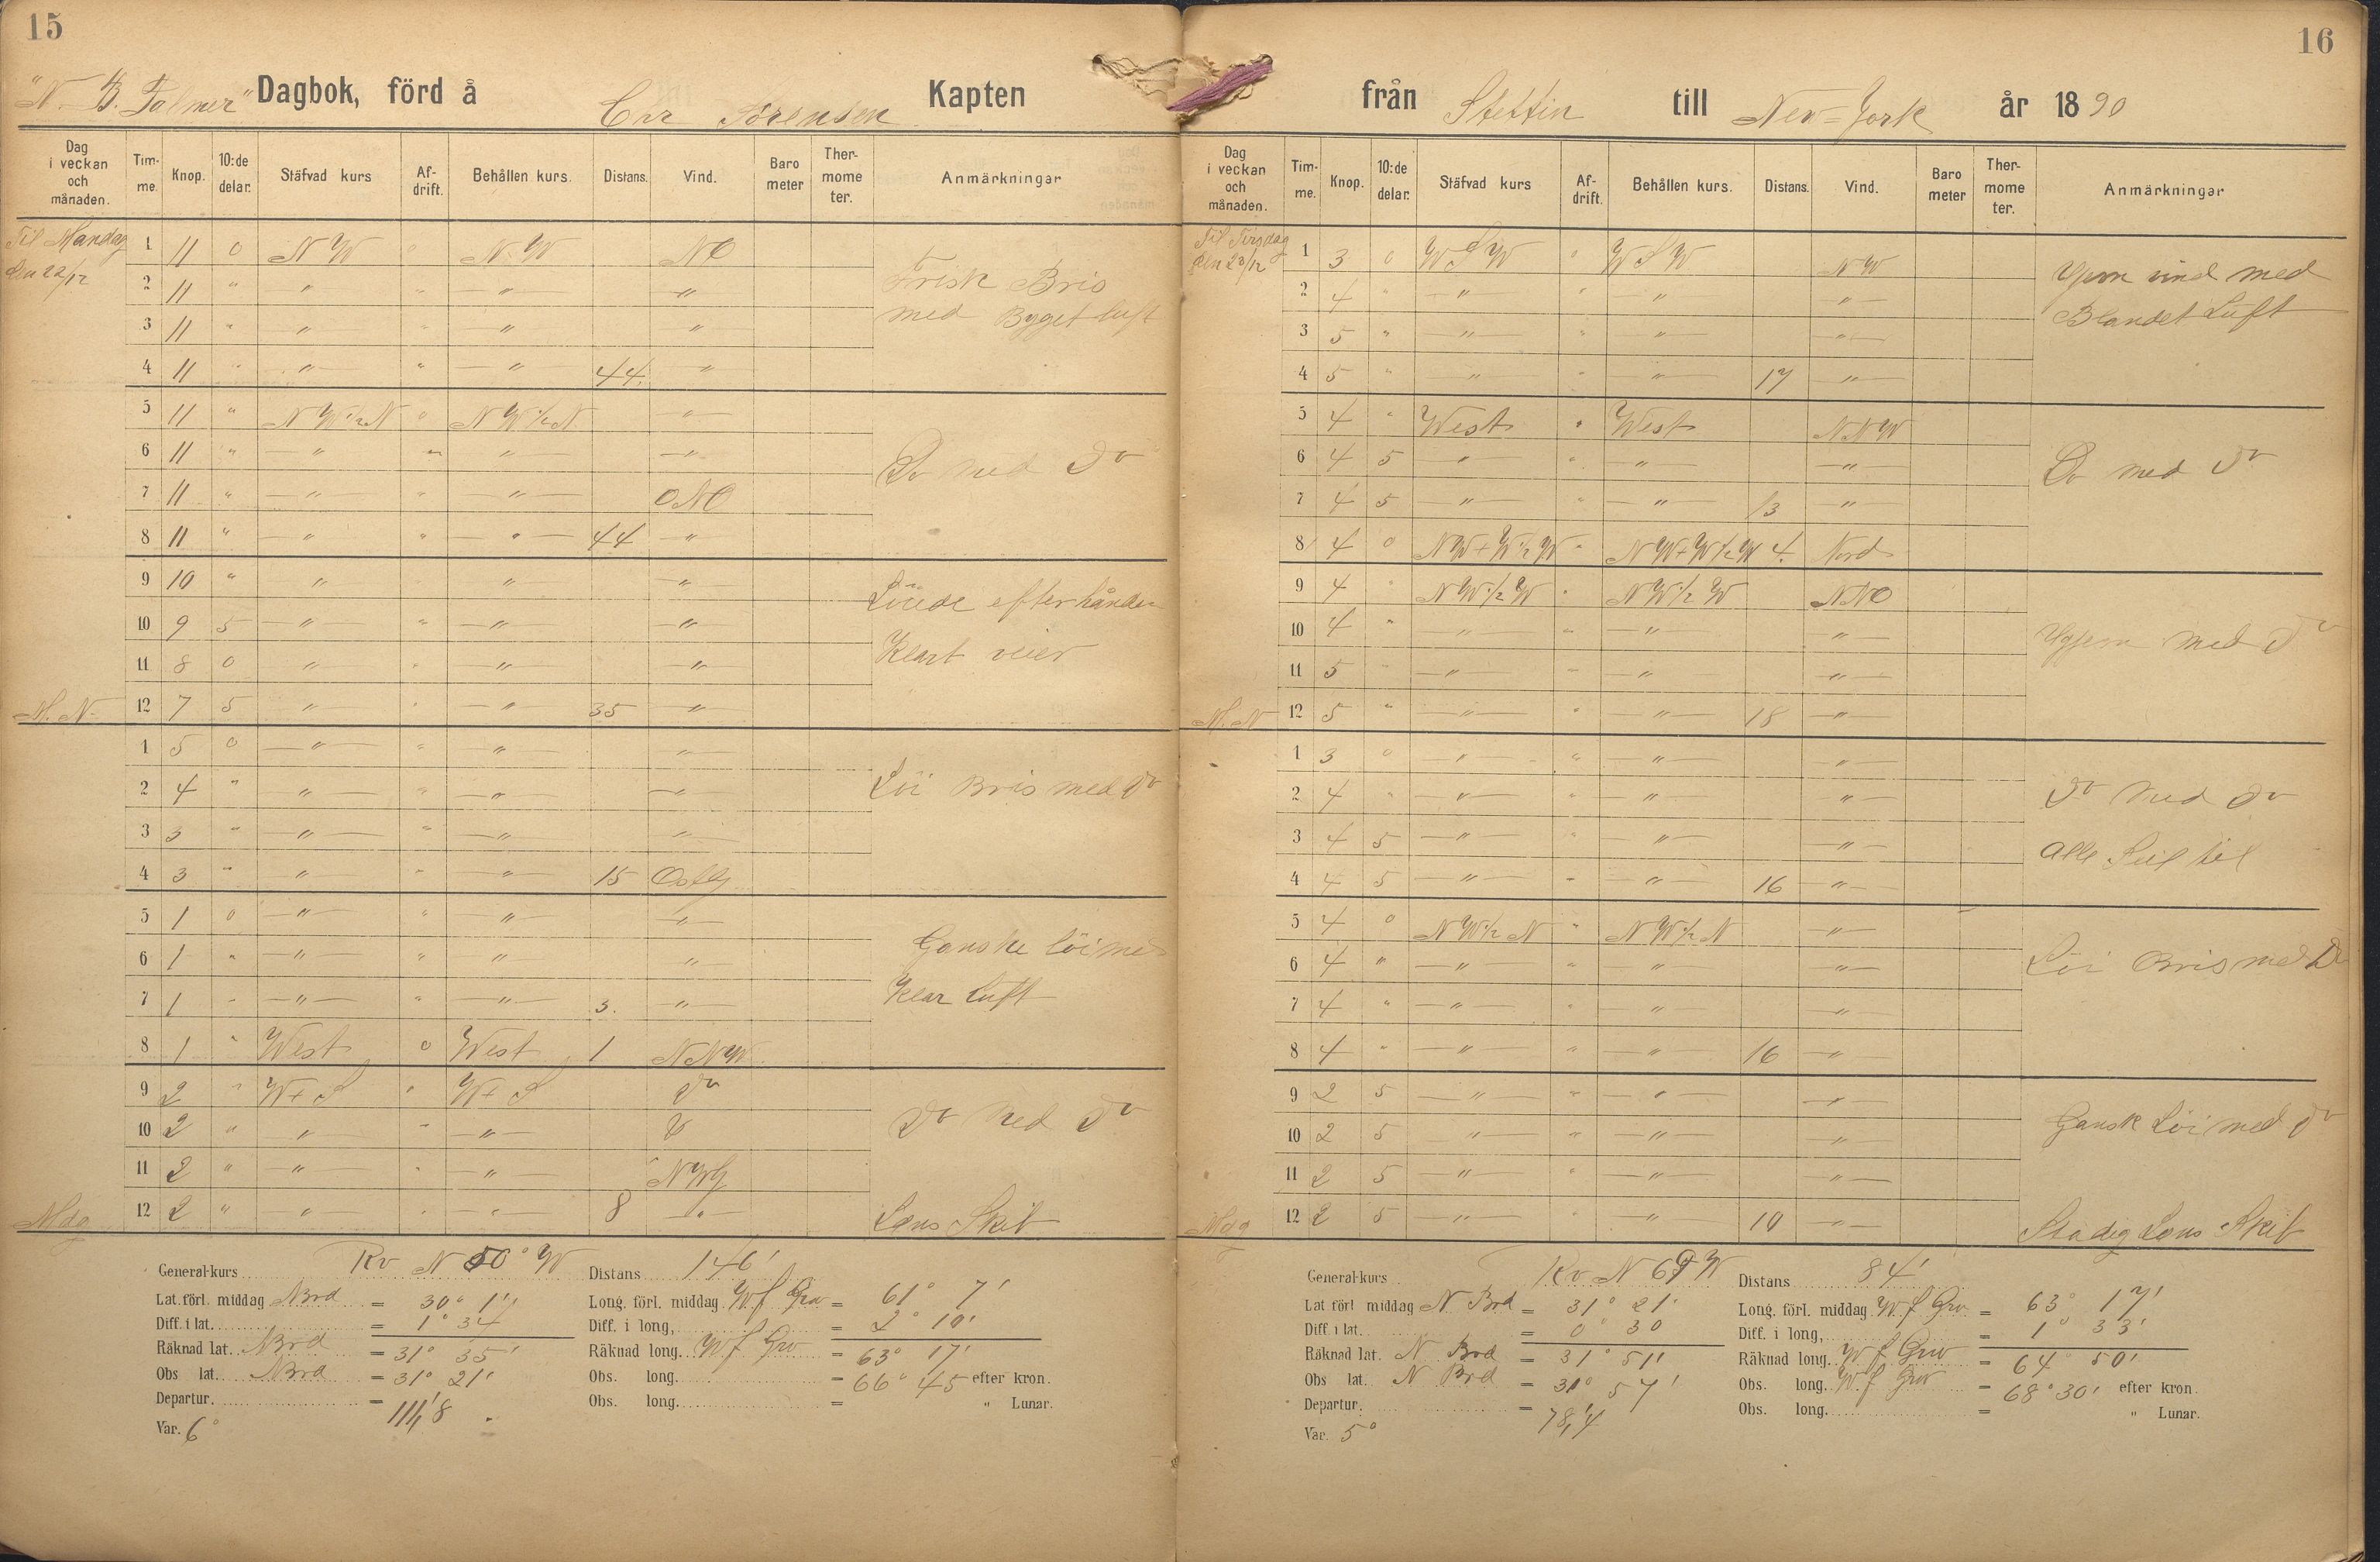 15
"N. B. Palmer" Dagbok, förd å Chr Sörensen Kapten
Dag i veckan och månaden. Tim-me. Knop. 10:de delar. Stäfvad kurs Af-drift. Behållen kurs. Distans. Vind. Baro meter Ther-mome ter. Anmärkningar
Til Mandag den 22/12
1 11 0 N W 0 N W NO Frisk Bris
2 11 " " " " " med Byget luft
3 11 " " " " "
4 11 " " " " 44 "
5 11 " N W 1/2 N 0 N W 1/2 N "
6 11 " " " " " Do med Do
7 11 " " " " ONO
8 11 " " " " 44 "
9 10 " " " " Löiede efterhånden
10 9 5 " " " "
11 8 0 " " " " Klart veier
M. N. 12 7 5 " " " 35 "
1 5 0 " " " "
2 4 " " " " " Löi Bris med Do
3 3 " " " " "
4 3 " " " " 15 Ostlg
5 1 0 " " " "
6 1 " " " " " Ganske löi med
7 1 " " " " 3. " Klar Luft
8 1 " West 0 West 1 NNW
9 2 " W+S " W+S Do
10 2 " " " " Do Do med Do
11 2 " " " " NWlg
Mdg 12 2 " " " " 8 " Lens Skib
General-kurs Rv N 50° W Distans 146'
Lat. förl. middag N Brd = 30° 1' Long. förl. middag W f Grw = 61° 7'
Diff. i lat. = 1° 34 Diff. i long, = 2° 10'
Räknad lat. N Brd = 31° 35' Räknad long. W f Grw = 63° 17'
Obs lat. N Brd = 31° 21' Obs. long. = 66° 45 efter kron.
Departur. = 111,8 Obs. long. = " Lunar.
Var. 6°
16
från Stettin till New-York år 1890
Dag i veckan och månaden. Tim-me. Knop. 10:de delar. Stäfvad kurs Af-drift. Behållen kurs. Distans. Vind. Baro meter Ther-mome ter. Anmärkningar
Til Tirsdag den 23/12
1 3 0 W S W " W S W N W vind med
2 4 " " " " " Blandet Luft
3 5 " " " " "
4 5 " " " " 17 "
5 4 " West " West NNW
6 4 5 " " " " Do med Do
7 4 5 " " " 13 "
8 4 0 NW+W 1/2 W " NW+W 1/2 W 4. Nord
9 4 " N W 1/2 W " N W 1/2 W NNO
10 4 " " " " " med Do
11 5 " " " " "
M. N 12 5 " " " " 18 "
1 3 0 " " " "
2 4 " " " " " Do med Do
3 4 5 " " " " Alle Seil til
4 4 5 " " " 16 "
5 4 0 N W 1/2 N " N W 1/2 N "
6 4 " " " " " Löi Bris med Do
7 4 " " " " "
8 4 " " " " 16 "
9 2 5 " " " "
10 2 5 " " " " Gansk Löi med Do
11 2 5 " " " "
Mdg 12 2 5 " " " 10 " Stadig Lens Skib
General-kurs Rv N 69° W Distans 84'
Lat förl middag N Brd = 31° 21' Long. förl. middag W f Grw = 63° 17'
Diff. i lat. = 0° 30 Diff. i long, = 1° 33'
Räknad lat. N Brd = 31° 51' Räknad long. W f Grw = 64° 50'
Obs lat. N Brd = 31° 57' Obs. long. W f Grw = 68° 30' efter kron.
Departur. = 78,4 Obs. long. = " Lunar.
Var. 5°